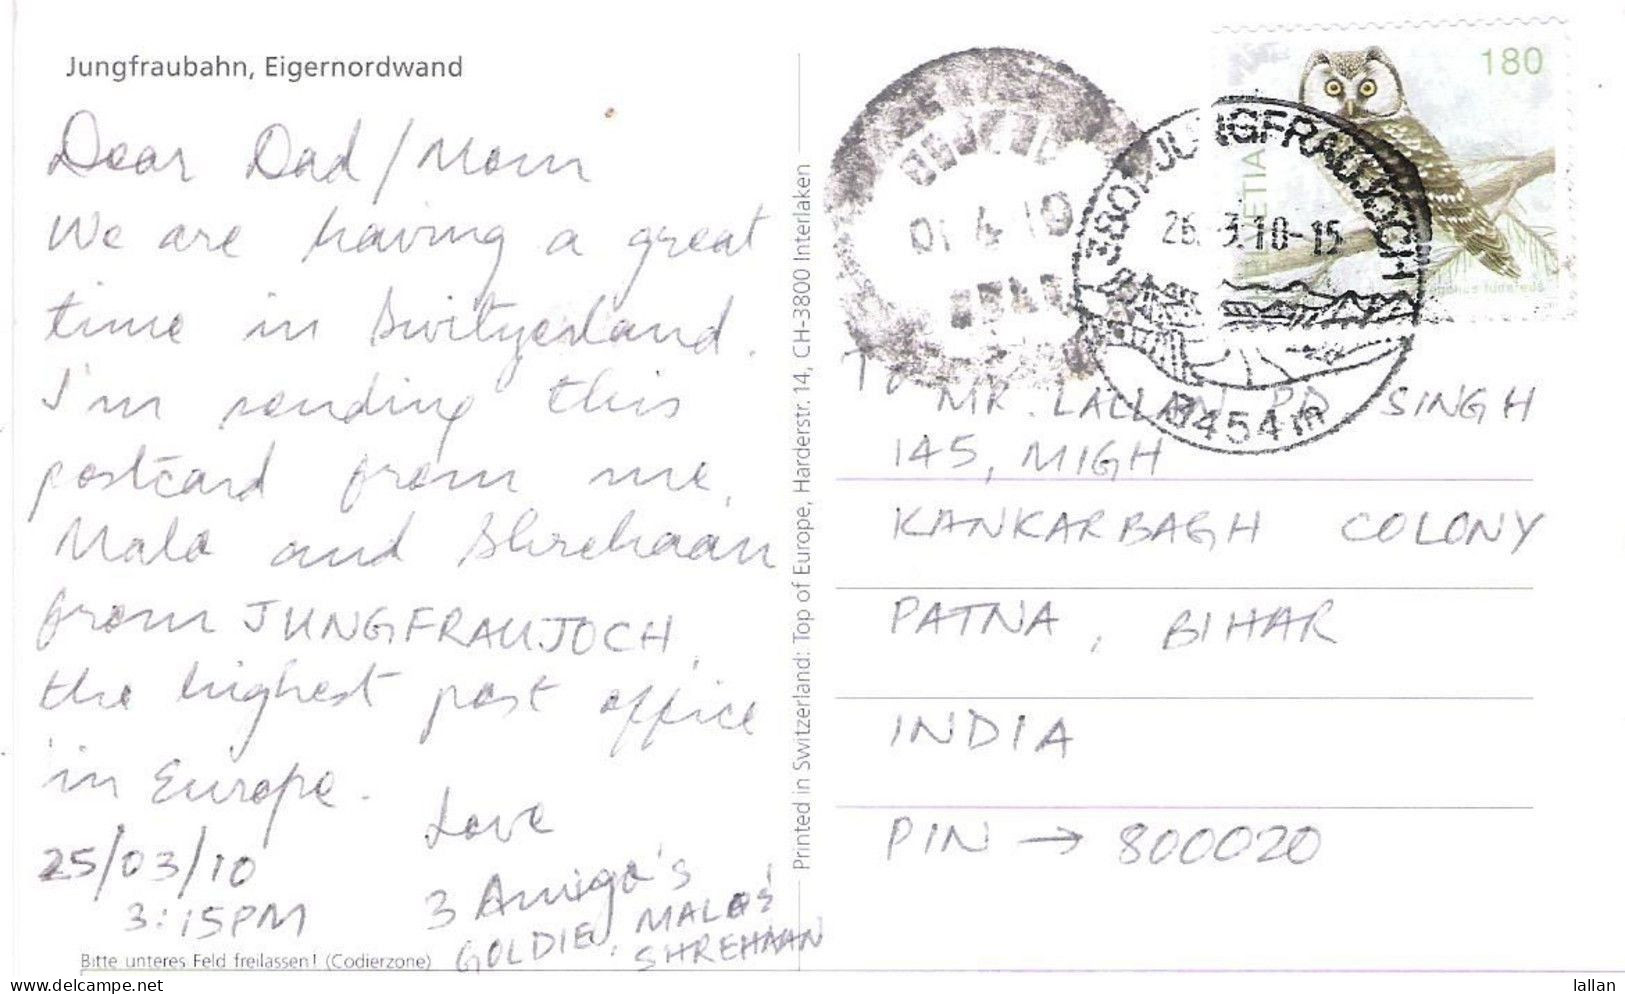 Jungfraubahn, Eigernordwand
Dear Dad/Mom
We are having a great
time in Switzerland.
I'm sending this
postcard from me,
Mala and Shrehaan
from JUNGFRAUJOCH,
the highest post office
in Europe.
25/03/10
3:15PM
Love
3 Amigo's
GOLDIE, MALA &
SHREHAAN
Bitte unteres Feld freilassen! (Codierzone)
Printed in Switzerland: Top of Europe, Harderstr. 14, CH-3800 Interlaken
01 4 10
3801 JUNGFRAUJOCH
26.-3.10-15
3454m
180
HELVETIA
To
MR. LALLAN PD. SINGH
145, MIGH
KANKARBAGH COLONY
PATNA, BIHAR
INDIA
PIN → 800020
lallan